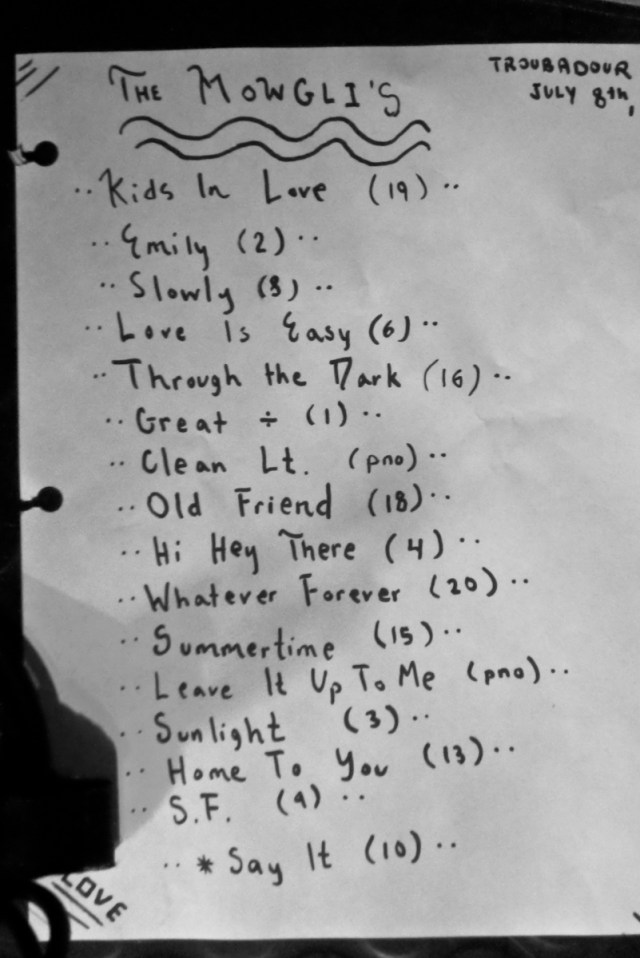 THE MOWGLI'S
TROUBADOUR
JULY 8th,
·· Kids In Love (19) ··
·· Emily (2) ··
·· Slowly (8) ··
·· Love Is Easy (6) ··
·· Through the Dark (16) ··
·· Great ÷ (1) ··
·· Clean Lt. (pno) ··
·· Old Friend (18) ··
·· Hi Hey There (4) ··
·· Whatever Forever (20) ··
·· Summertime (15) ··
·· Leave It Up To Me (pno) ··
·· Sunlight (3) ··
·· Home To You (13) ··
·· S.F. (9) ··
·· * Say It (10) ··
LOVE